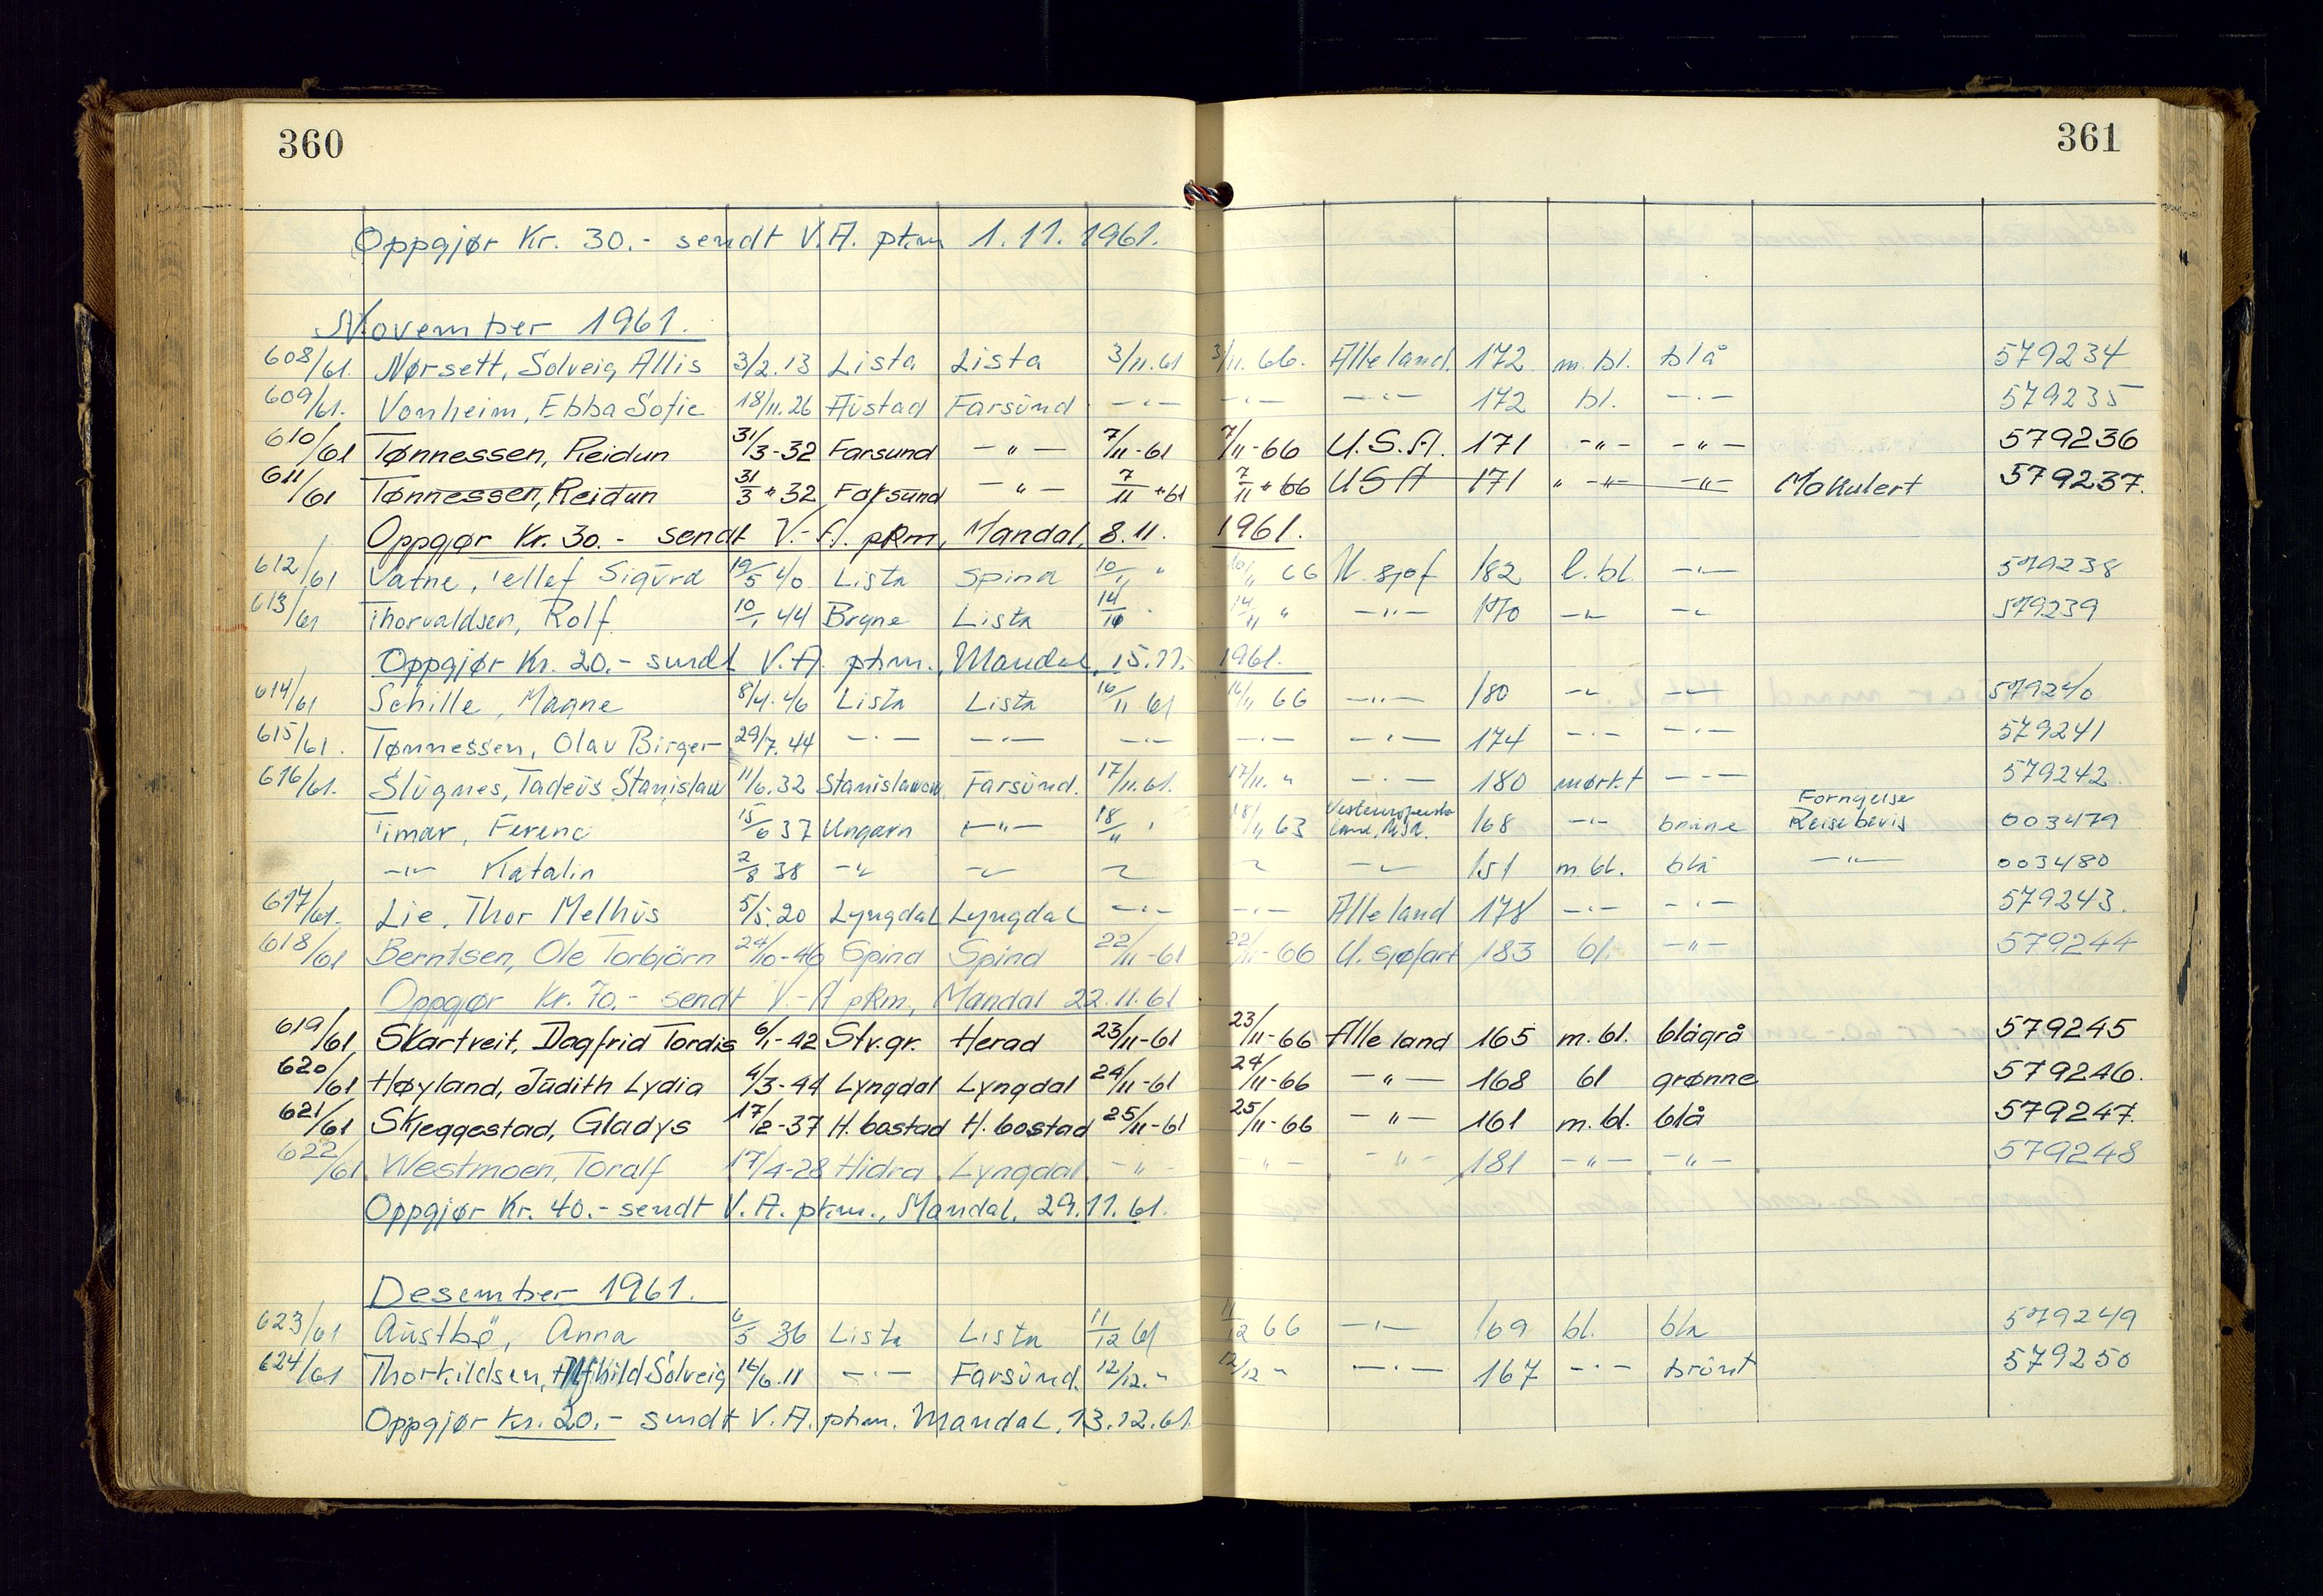 360
361
Oppgjør Kr. 30.- sendt V.A. ptm 1.11.1961.
November 1961.
608/61. Nørsett, Solveig Allis 3/2.13 Lista Lista 3/11.61 3/11.66. Alle land. 172 m. bl. blå 579234
609/61. Vonheim, Ebba Sofie 18/11.26 Aüstad Farsünd -"- -"- -"- 172 bl. -"- 579235
610/61 Tønnessen, Reidun 31/3-32 Farsund -"- 7/11-61 7/11-66 U.S.A. 171 -"- -"- 579236
611/61 Tønnessen, Reidun 31/3 32 Farsund -"- 7/11 61 7/11 66 USA 171 " -"- -"- Makulert 579237.
Oppgjør Kr. 30.- sendt V.-A. pkm, Mandal, 8.11. 1961.
612/61 Vatne, Tellef Sigürd 19/5 40 Lista Spind 10/11 " 10/11 66 U. sjøf 182 l. bl. -"- 579238
613/61 Thorvaldsen, Rolf 10/1 44 Bryne Lista 14/11 " 14/11 " -"- 170 -"- -"- 579239
Oppgjør Kr. 20.- sendt V.A. ptm., Mandal, 15.11. 1961.
614/61 Schille, Magne 8/4.46 Lista Lista 16/11 61 16/11 66 -"- 180 -"- -"- 579240
615/61. Tønnessen, Olav Birger 29/7.44 -"- -"- -"- -"- -"- 174 -"- -"- 579241
616/61. Slügnes, Tadeüs Stanislaw 11/6.32 Stanislawow Farsünd. 17/11.61. 17/11. " -"- 180 mørkt -"- 579242.
Timar, Ferenc 15/6 37 Ungarn -"- 18/11 " 18/11 63 Vesteuropeiske land, USA. 168 -"- brune Fornyelse Reisebevis 003479
-"- Katalin 2/8 38 -"- -"- -"- -"- -"- 151 m. bl. blå -"- 003480
617/61. Lie, Thor Melhüs 5/5.20 Lyngdal Lyngdal -"- -"- Alle land 178 -"- -"- 579243.
618/61 Berntsen, Ole Torbjörn 24/10-46 Spind Spind 22/11-61 22/11-66 U. sjøfart 183 bl. -"- 579244
Oppgjør Kr. 70.- sendt V.-A pkm, Mandal 22.11.61
619/61 Skartveit, Dagfrid Tordis 6/1-42 Stv.gr. Herad 23/11-61 23/11-66 Alle land 165 m. bl. blågrå 579245
620/61 Høyland, Jüdith Lydia 4/3-44 Lyngdal Lyngdal 24/11-61 24/11-66 -"- 168 bl grønne 579246.
621/61 Skjeggestad, Gladys 17/2-37 H. bostad H. bostad 25/11-61 25/11-66 -"- 161 m. bl. blå 579247.
622/61 Westmoen, Toralf 17/4-28 Hidra Lyngdal -"- -"- -"- 181 -"- -"- 579248
Oppgjør Kr. 40.- sendt V.A. ptm., Mandal, 29.11.61.
Desember 1961.
623/61 Aüstbø, Anna 6/5 36 Lista Lista 11/12 61 11/12 66 -"- 169 bl. blå 579249
624/61 Thorkildsen, Alfhild Solveig 16/6.11 -"- Farsünd. 12/12. " 12/12 " -"- 167 -"- brünt 579250
Oppgjør kr. 20.- sendt V.A. ptm. Mandal, 13.12.61.